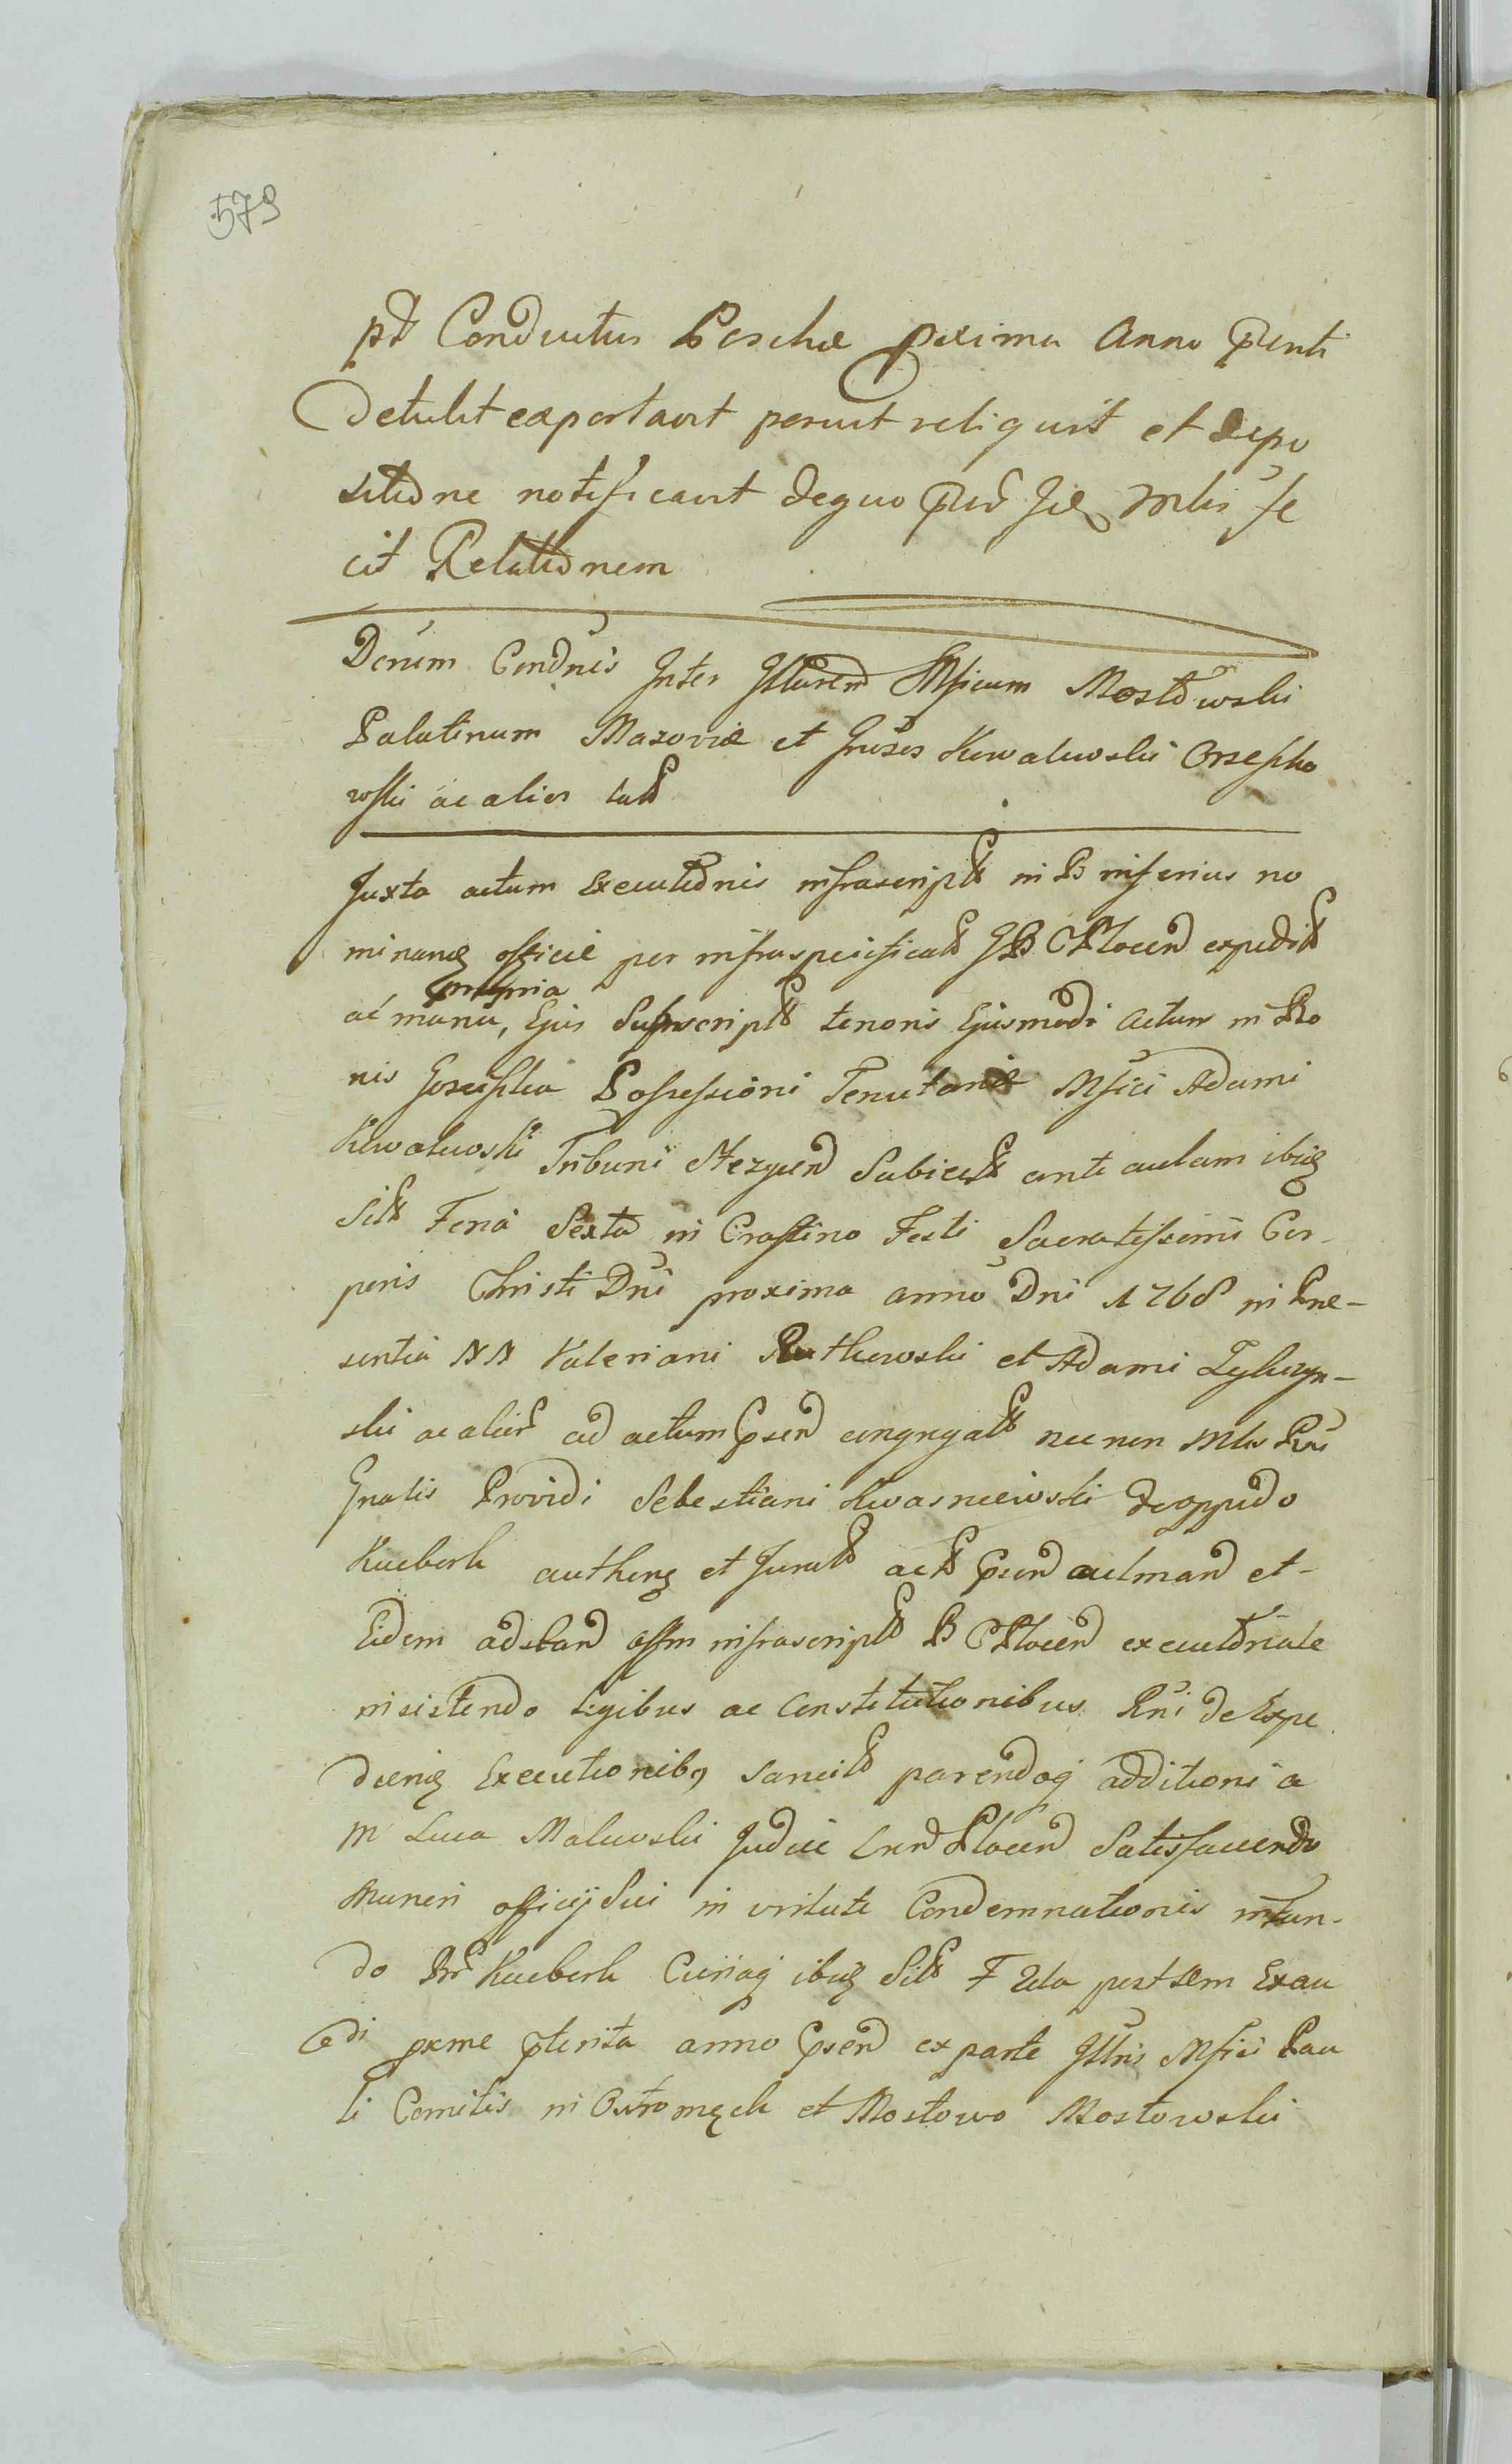 579
pt Conductus Paschæ pxima Anno Pnti
Detulit exportavit posuit reliquit et depo
sitione notificavit de quo Pns Jdē Mlis fe
cit Relationem
Decrum Condnis Inter Illurem Mficum Mostowski
Palatinum Masoviæ et Gnosos Kowalewski Orzescho
wski ac alios
Juxta actum Executionis infrascript in B inferius no
minanē officii per infraspecificat JB Plocen expedit
ac manu, propria Ejus Subscript tenoris Ejusmodi Actum in Bo
nis Possessioni Tenutariæ Mfici Adami
Kowalewski Tribuni Stezycen Subiect ante aulam ibid
Sit Feria Sexta in Crastino Festi Sacratissimi Cor-
poris Christi Dni proxima anno Dni 1768 in Præ-
sentia NN Valeriani Rutkowski et Adami
ski ac alior ad actum psen congregat nec non Mlis Rni
Gnalis Providi Sebestiani Kwasniewski de oppido
Kucbork authen et Jurat act psen aclman et
Eidem adstan offm infrascript B Plocen executionale
insistendo legibus ac Constitutionibus Rni de Expe
dien Executionibq sancit parendoq additioni a
M Luca Malewski Judice Plocen Satisfaciendo
Muneri officij Sui in virtute Condemnationis intan-
do Kucbork Curiaq ibid Sit F 2da post Dem Exau
di pxme pterita anno psen ex parte Illris Mfici Pau
li Comitis in Ostromęck et Mostowo Mostowski